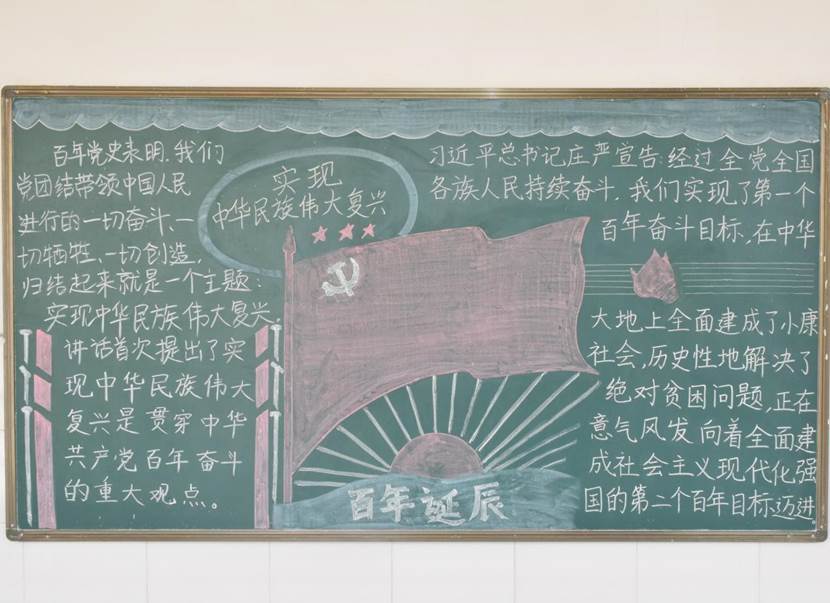 百年党史表明,我们
党团结带领中国人民
进行的一切奋斗、一
切牺牲、一切创造,
归结起来就是一个主题:
实现中华民族伟大复兴。
讲话首次提出了实
现中华民族伟大
复兴是贯穿中华
共产党百年奋斗
的重大观点。
实现
中华民族伟大复兴
百年诞辰
习近平总书记庄严宣告:经过全党全国
各族人民持续奋斗,我们实现了第一个
百年奋斗目标,在中华
大地上全面建成了小康
社会,历史性地解决了
绝对贫困问题,正在
意气风发向着全面建
成社会主义现代化强
国的第二个百年目标迈进